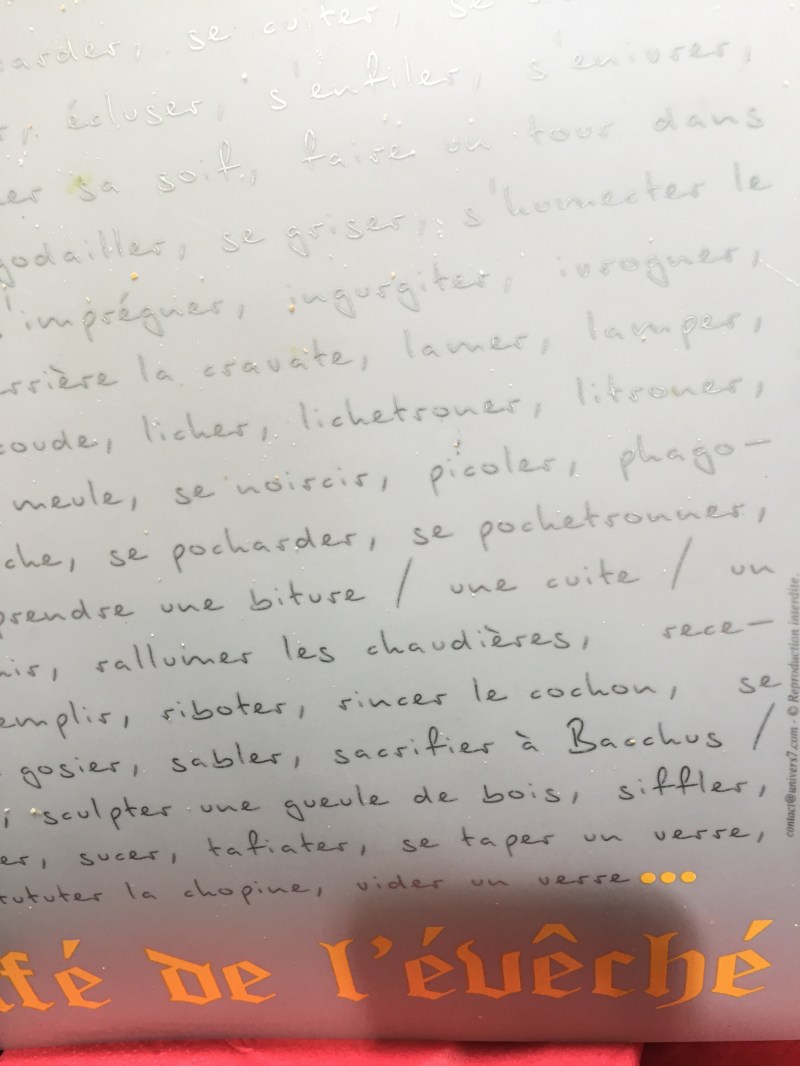 arder, se cuiter, se
écluser, s'enfiler, s'enivrer,
er sa soif, faire un tour dans
godailler, se griser, s'humecter le
'imprégner, ingurgiter, ivrogner,
rrière la cravate, lamer, lamper,
coude, licher, lichetroner, litroner,
meule, se noircir, picoler, phago-
che, se pocharder, se pochetronner,
prendre une biture / une cuite / un
nir, rallumer les chaudières, rece-
emplir, riboter, rincer le cochon, se
gosier, sabler, sacrifier à Bacchus /
, sculpter une gueule de bois, siffler,
er, sucer, tafiater, se taper un verre,
tututer la chopine, vider un verre...
fé de l'évêché
contact@univers7.com - © Reproduction interdite.